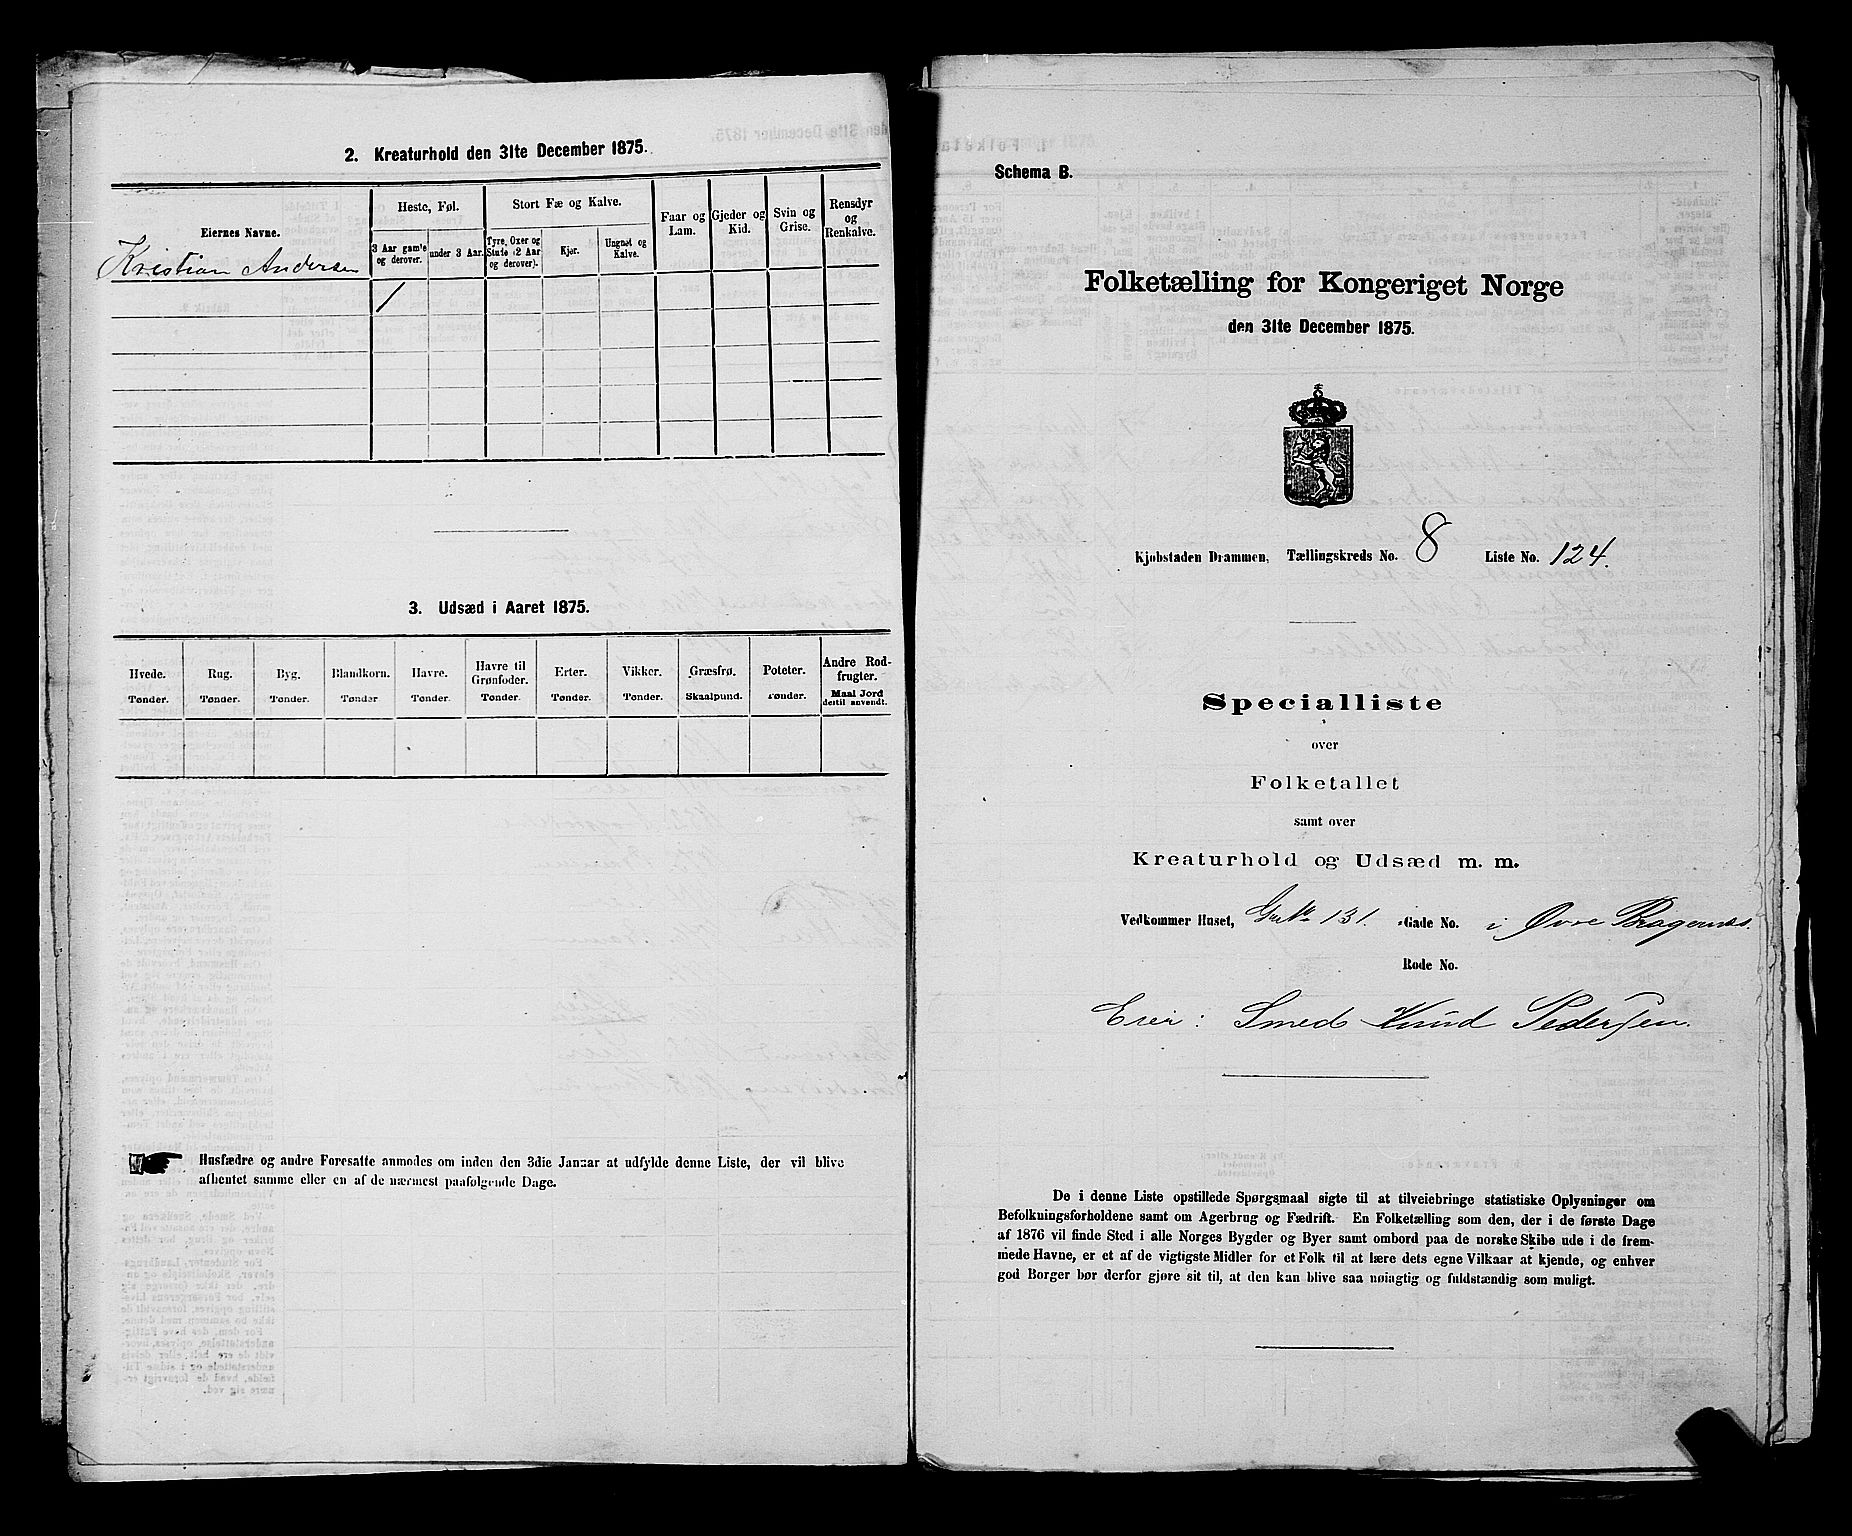 2. Kreaturhold den 31te December 1875.
Eiernes Navne.
Heste, Føl.
3 Aar gamle og derover.
under 3 Aar.
Stort Fæ og Kalve.
Tyre, Oxer og Stude (2 Aar og derover).
Kjør.
Ungnøt og Kalve.
Faar og Lam.
Gjeder og Kid.
Svin og Grise.
Rensdyr og Renkalve.
Kristian Andersen
1
3. Udsæd i Aaret 1875.
Hvede. Rug. Byg. Blandkorn. Havre. Havre til Grønfoder. Erter. Vikker. Græsfrø. Poteter. Andre Rodfrugter.
Tønder. Tønder. Tønder. Tønder Tønder. Tønder. Tønder. Tønder. Skaalpund. Tønder. Maal Jord dertil anvendt.
Husfædre og andre Foresatte anmodes om inden den 3die Januar at udfylde denne Liste, der vil blive
afhentet samme eller en af de nærmest paafølgende Dage.
Schema B.
Folketælling for Kongeriget Norge
den 31te December 1875.
Kjøbstaden Drammen, Tællingskreds No. 8 Liste No. 124.
Specialliste
over
Folketallet
samt over
Kreaturhold og Udsæd m. m.
Vedkommer Huset, 131. Gade No. i Øvre Bragernæs.
Rode No.
Eier: Smed Knud Pedersen.
De i denne Liste opstillede Spørgsmaal sigte til at tilveiebringe statistiske Oplysninger om
Befolkningsforholdene samt om Agerbrug og Fædrift. En Folketælling som den, der i de første Dage
af 1876 vil finde Sted i alle Norges Bygder og Byer samt ombord paa de norske Skibe ude i de frem-
mede Havne, er et af de vigtigste Midler for et Folk til at lære dets egne Vilkaar at kjende, og enhver
god Borger bør derfor gjøre sit til, at den kan blive saa nøiagtig og fuldstændig som muligt.